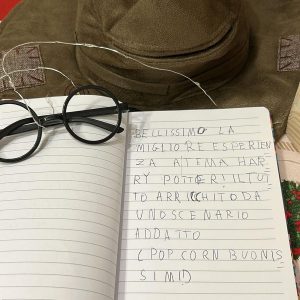 BELLISSIMO LA
MIGLIORE ESPERIEN
ZA A TEMA HAR
RY POTTER! IL TUT
TO ARRICCHITO DA
UNO SCENARIO
ADDATTO
(POP CORN BUONIS
SIMI)